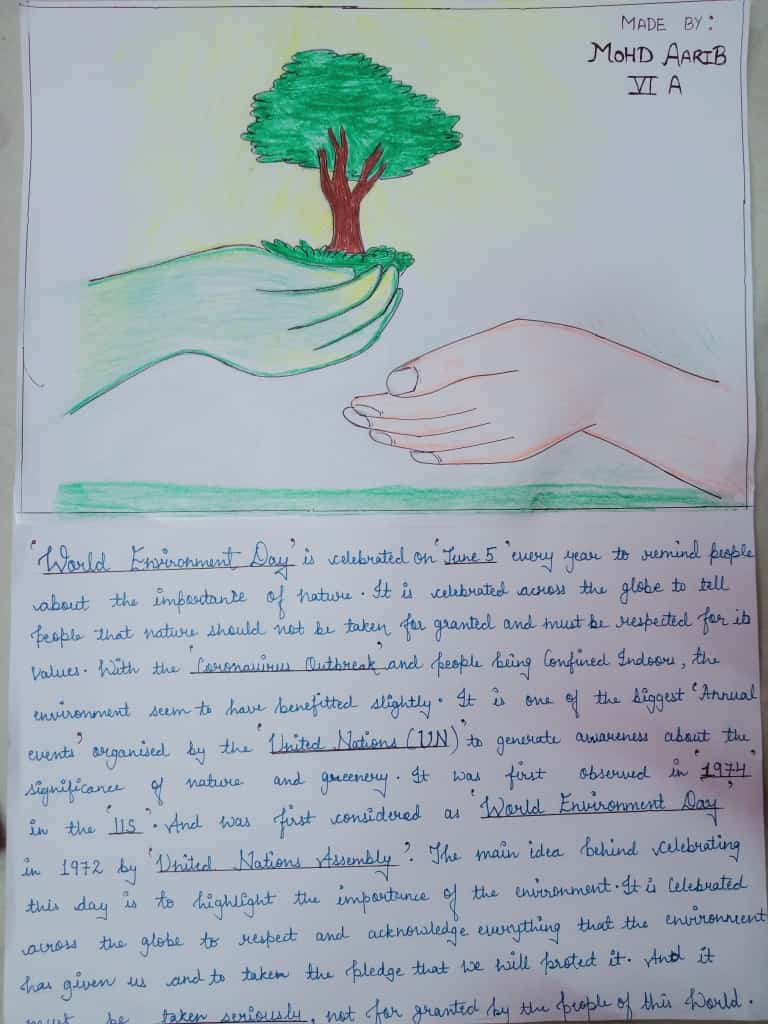 MADE BY:
MOHD AARIB
VI A
'World Environment Day' is celebrated on 'June 5' every year to remind people
about the importance of nature. It is celebrated across the globe to tell
people that nature should not be taken for granted and must be respected for its
values. With the 'Coronavirus Outbreak' and people being Confined Indoors, the
environment seem to have benefitted slightly. It is one of the biggest 'Annual
events' organised by the 'United Nations (UN)' to generate awareness about the
significance of nature and greenery. It was first observed in '1974'
in the 'US'. And was first considered as 'World Environment Day'
in 1972 by 'United Nations Assembly'. The main idea behind celebrating
this day is to highlight the importance of the environment. It is Celebrated
across the globe to respect and acknowledge everything that the environment
has given us and to taken the pledge that we will protect it. And it
must be taken seriously, not for granted by the people of this World.